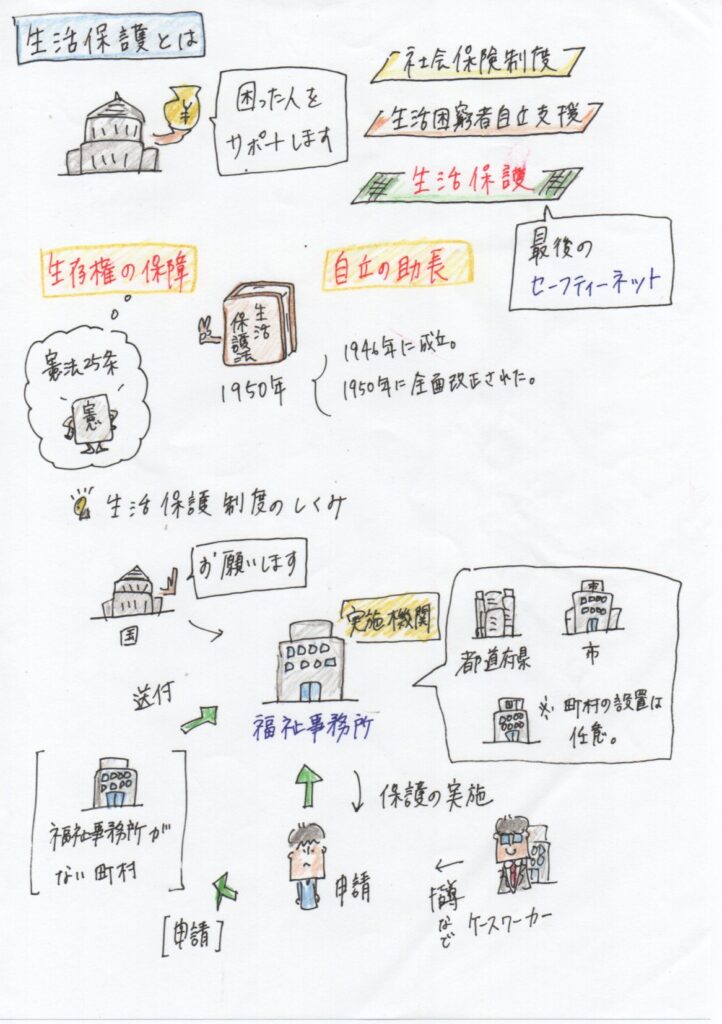 生活保護とは
¥
困った人を
サポートします
社会保険制度
生活困窮者自立支援
生活保護
最後の
セーフティーネット
生存権の保障
自立の助長
憲法25条
憲
生活
保護法
1950年
1946年に成立。
1950年に全面改正された。
生活保護制度のしくみ
お願いします
国
実施機関
福祉事務所
都道府県
市
市
町村
※町村の設置は
任意。
送付
福祉事務所が
ない町村
[申請]
申請
保護の実施
など
ケースワーカー